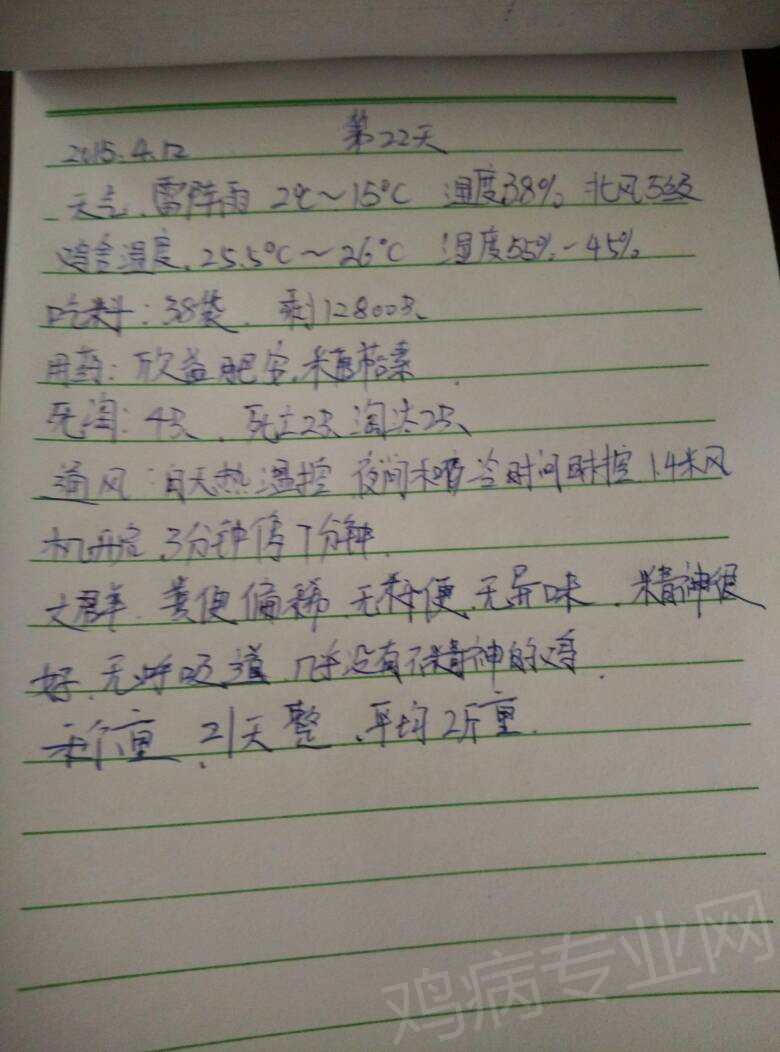 2015.4.12 第22天
天气.雷阵雨 2℃~15℃ 湿度38% 北风5级
鸡舍温度.25.5℃~26℃ 湿度55%-45%
吃料:38袋. 剩12800只
用药:欣益肥安.
死淘:4只.死亡2只淘汰2只
通风:白天热温控 夜间 冷时间 控 1.4米风
机开启3分钟停7分钟.
大群.粪便偏稀.无料便.无异味.精神很
好.无呼吸道.几乎没有不精神的鸡.
称重.21天整.平均2斤重.
鸡病专业网